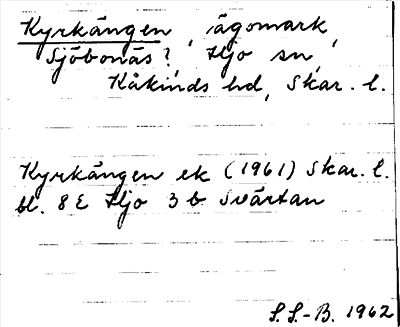 Kyrkängen, ägomark,
Sjöbonäs?, Hjo sn,
Kåkinds hd, Skar. l.
Kyrkängen ek (1961) Skar. l.
bl. 8E Hjo 3b Svärtan
S.S.-B. 1962